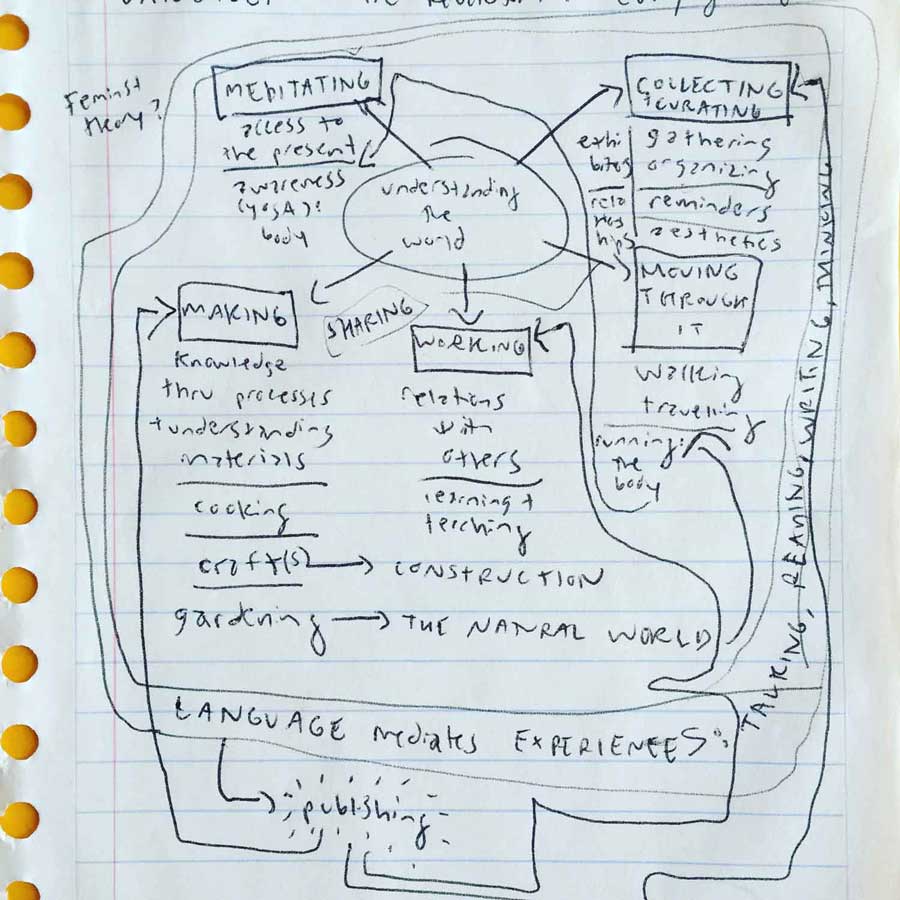 Feminist
theory?
MEDITATING
access to
the present
awareness
(yogA):
body
understanding
the
world
COLLECTING
+CURATING
exhi
bitos
rela
tios
hips
gathering
organizing
reminders
aesthetics
MOVING
THROUGH
IT
walking
travelling
running:
the
body
MAKING
knowledge
thru processes
+understanding
materials
cooking
craft(s)
CONSTRUCTION
gardening
THE NATRAL WORLD
SHARING
WORKING
relations
with
others
learning +
teaching
LANGUAGE mediates EXPERIENEES:
TALKING, READING, WRITING, THINKING
publishing